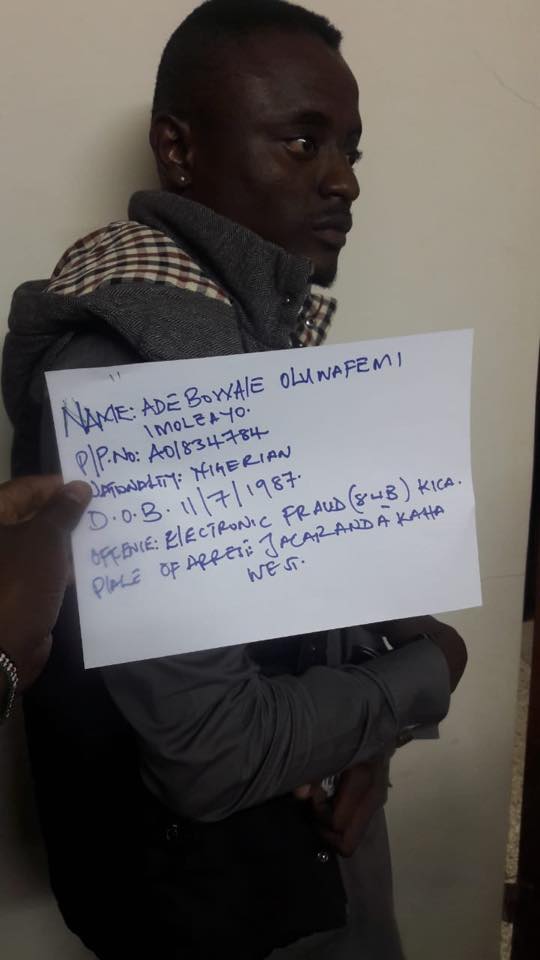 NAME: ADEBOWALE OLUWAFEMI
IMOLEAYO.
P/P.No: A01834784
NATIONALITY: NIGERIAN
D.O.B. 11/7/1987.
OFFENCE: ELECTRONIC FRAUD (84B) KICA.
PLACE OF ARREST: JACARANDA KAHA
WEST.